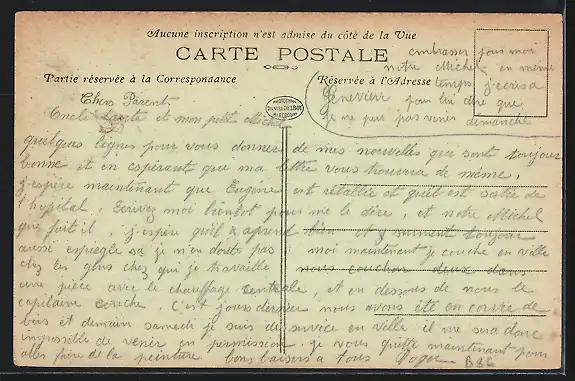 Aucune inscription n'est admise du côté de la Vue
CARTE POSTALE
Partie réservée à la Correspondance
Réservée à l'Adresse
embrasser pour moi
notre Michel en même
temps j'écris a
Geneviève pour lui dire que
je ne peu pas venir dimanche
Chers Parent,
Oncle et mon petit Michel
quelques lignes pour vous donner de mes nouvelles qui sont toujours
bonne et en espérant que ma lettre vous trouvera de même,
j'espère maintenant que Eugène est rétablie et qu'il est sortie de
l'hopital, Ecrivez moi bientot pour me le dire, et notre Michel
que fait il, j'espère qu'il apprend bien et surment toujour
aussi espiègle sa je n'en doute pas moi maintenant je couche en ville
chez les gens chez qui je travaille nous couchon deux dans
une pièce avec le chauffage Sentrale, et en dessous de nous le
capitaine couche. C'est jours dernier nous avons été en corvée de
bois et demain samedi je suis de service en ville il me sera donc
impossible de venir en permission. je vous quitte maintenant pour
aller faire de la peinture bons baisers a tous Roger
B86